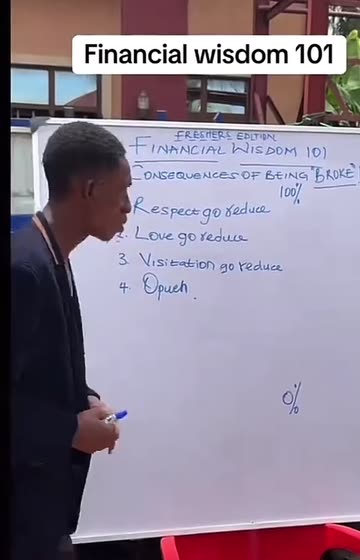 Financial wisdom 101
FRESHERS EDITION
FINANCIAL WISDOM 101
CONSEQUENCES OF BEING "BROKE"
100%
Respect go reduce
2. Love go reduce
3. Visitation go reduce
4. Opueh.
0%